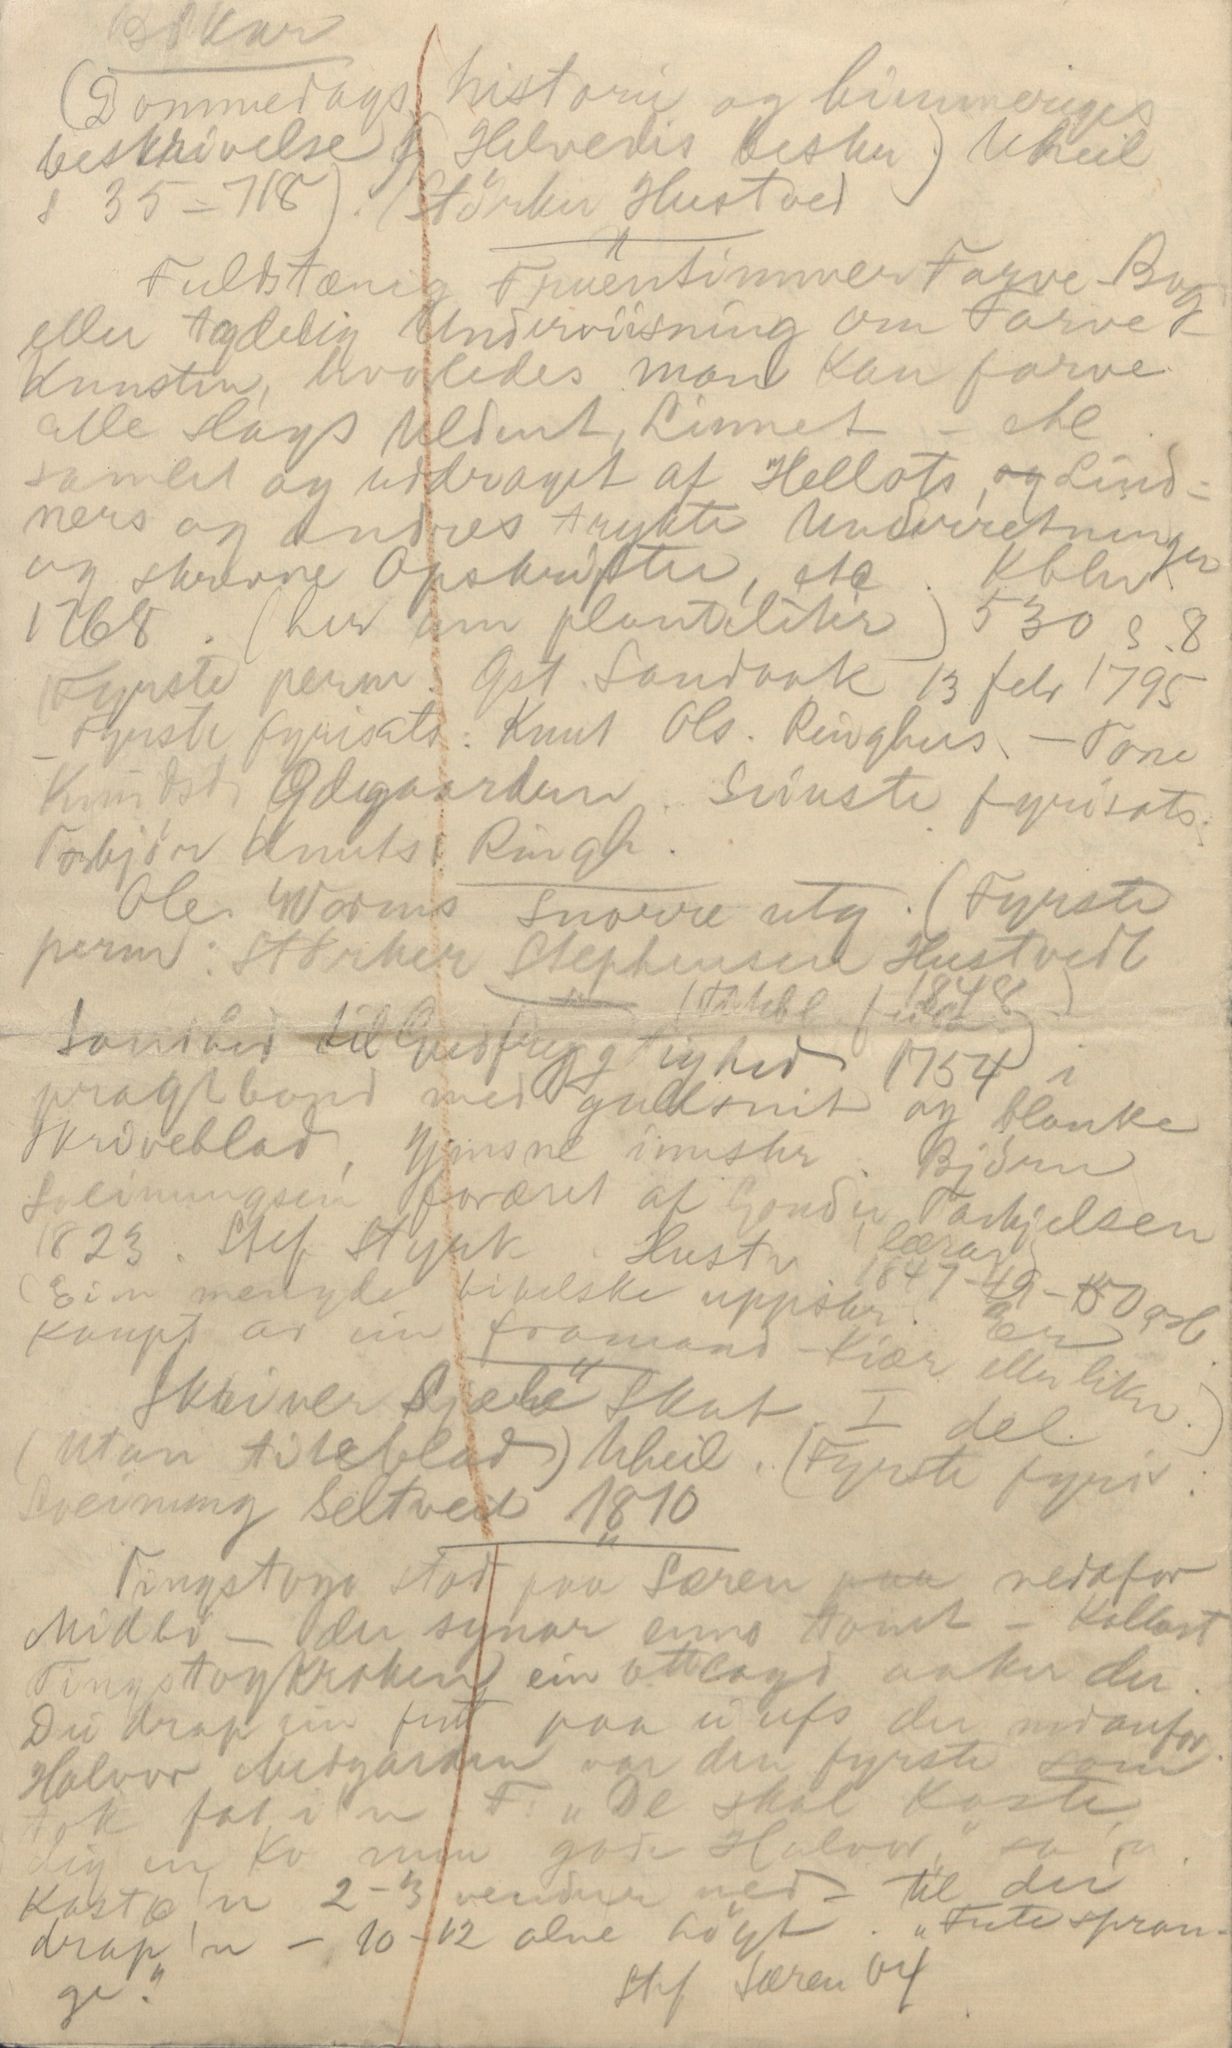 Bökar
(Dommedags historie og himmeriges
beskrivelse og Helvedis beskr.) Uheil
s 35-718). (Störker Hustved
"
Fuldstænig Fruentimmer Farve-Bog
eller tydelig Underviisning om Farve-
Kunsten, hvorledes man kan farve
alle slags Uldent, Linnet - etc.
samlet og uddraget af Hellots, og Lind-
ners og andres trykte Underretninger
og skrevne Opskrifter, etc. Kbhvn.
1768. (her um plantelitir) 530 s. 8
Fyrste perm. Gst. Sandaak 13 febr 1795
- Fyrste fyrisats: Knut Ols. Ringhus. - Tone
Knudsd. Ödegaarden. Seinste fyrisats:
Torbjör Knuts. Ringh.
Ole Worms Snorre utg. (Fyrste
perm: Störker Stephensen Hustvedt
1848)
"
Sandhed til Gudfrygtighed 1754 i
pragtbond med gullsnit og blanke
Skriveblad, ymsne innskr. Björn
Sveinungsen foræret af Gonder Torbjelsen
1823. Stef Styrk. Hustv. (lærar
1847-49-50 osb
(Ein mengde bibelske uppskr. er
kaupt av ein framand-kjær eller liker.)
"
Skriver Sjæle Skat. I del.
(Utan titelblad) Uheil. (Fyrste fyris:
Sveinung Seltveit 1810
"
Tingstogo stod paa Særen paa nedafor
Midbö - der synar enno tomt - Kallast
Tingstogkroken, ein attlagd aaker der.
Dei drap ein fut paa ei ufs der nedanfor.
Halvor Midgarden var den fyrste som
tok fat i'n F: "De skal kaste
dig en Ko min gode Halvor," sa'n.
Kasta'n 2-3 vendur ned - til dei
drap'n - 10-12 alne högt. "Futespran-
ge."
Stef Særen 04